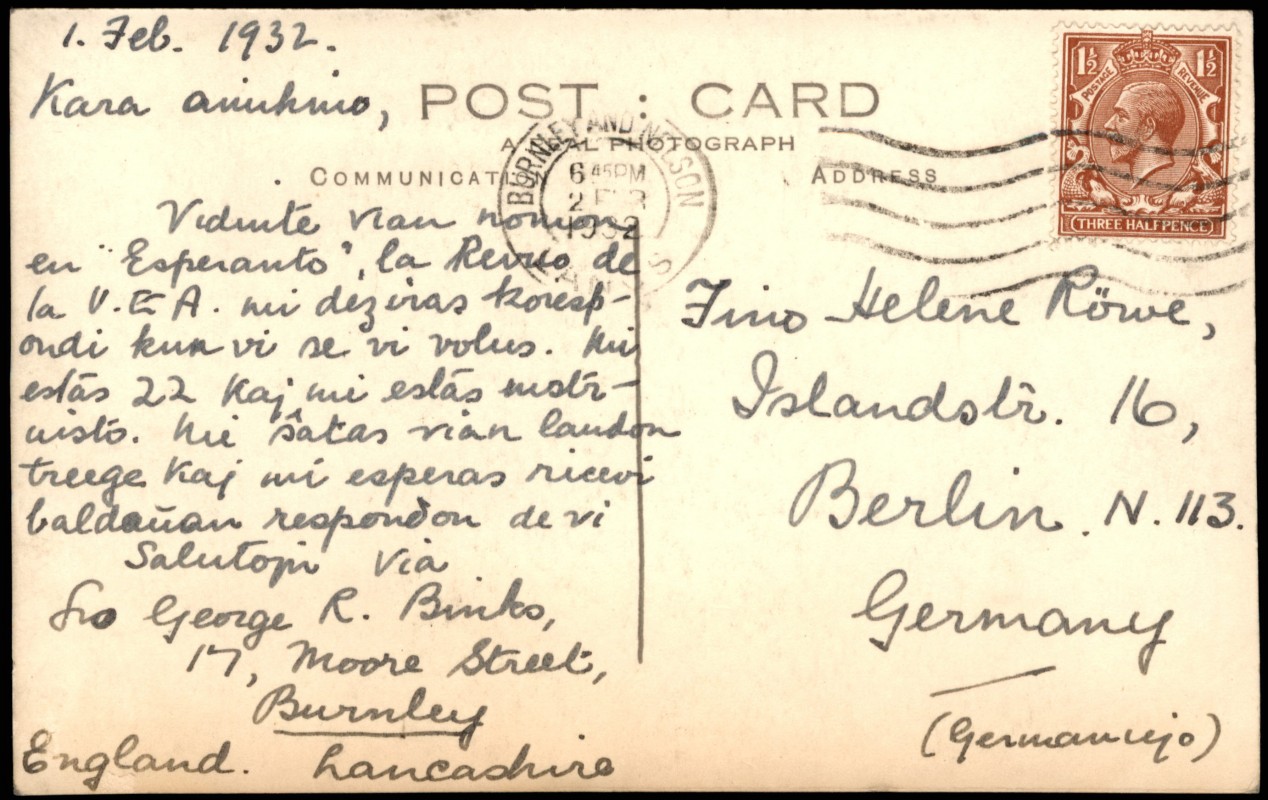 1. Feb. 1932.
Kara amikino,
POST : CARD
A REAL PHOTOGRAPH
COMMUNICATION
ADDRESS
BURNLEY AND NELSON
6 45PM
2 FEB
1932
LANCS
1½ 1½
POSTAGE REVENUE
THREE HALF PENCE
Vidinte vian nomon
en "Esperanto", la Revuo de
la U.E.A. mi deziras koresp-
ondi kun vi se vi volus. Mi
estas 22 kaj mi estas instr-
uisto. Mi ŝatas vian landon
treege kaj mi esperas ricevi
baldaŭan respondon de vi
Salutojn via
Sro George R. Binks,
17, Moore Street,
Burnley
England. Lancashire
Fino Helene Röwe,
Islandstr. 16,
Berlin. N. 113.
Germany
(Germanujo)